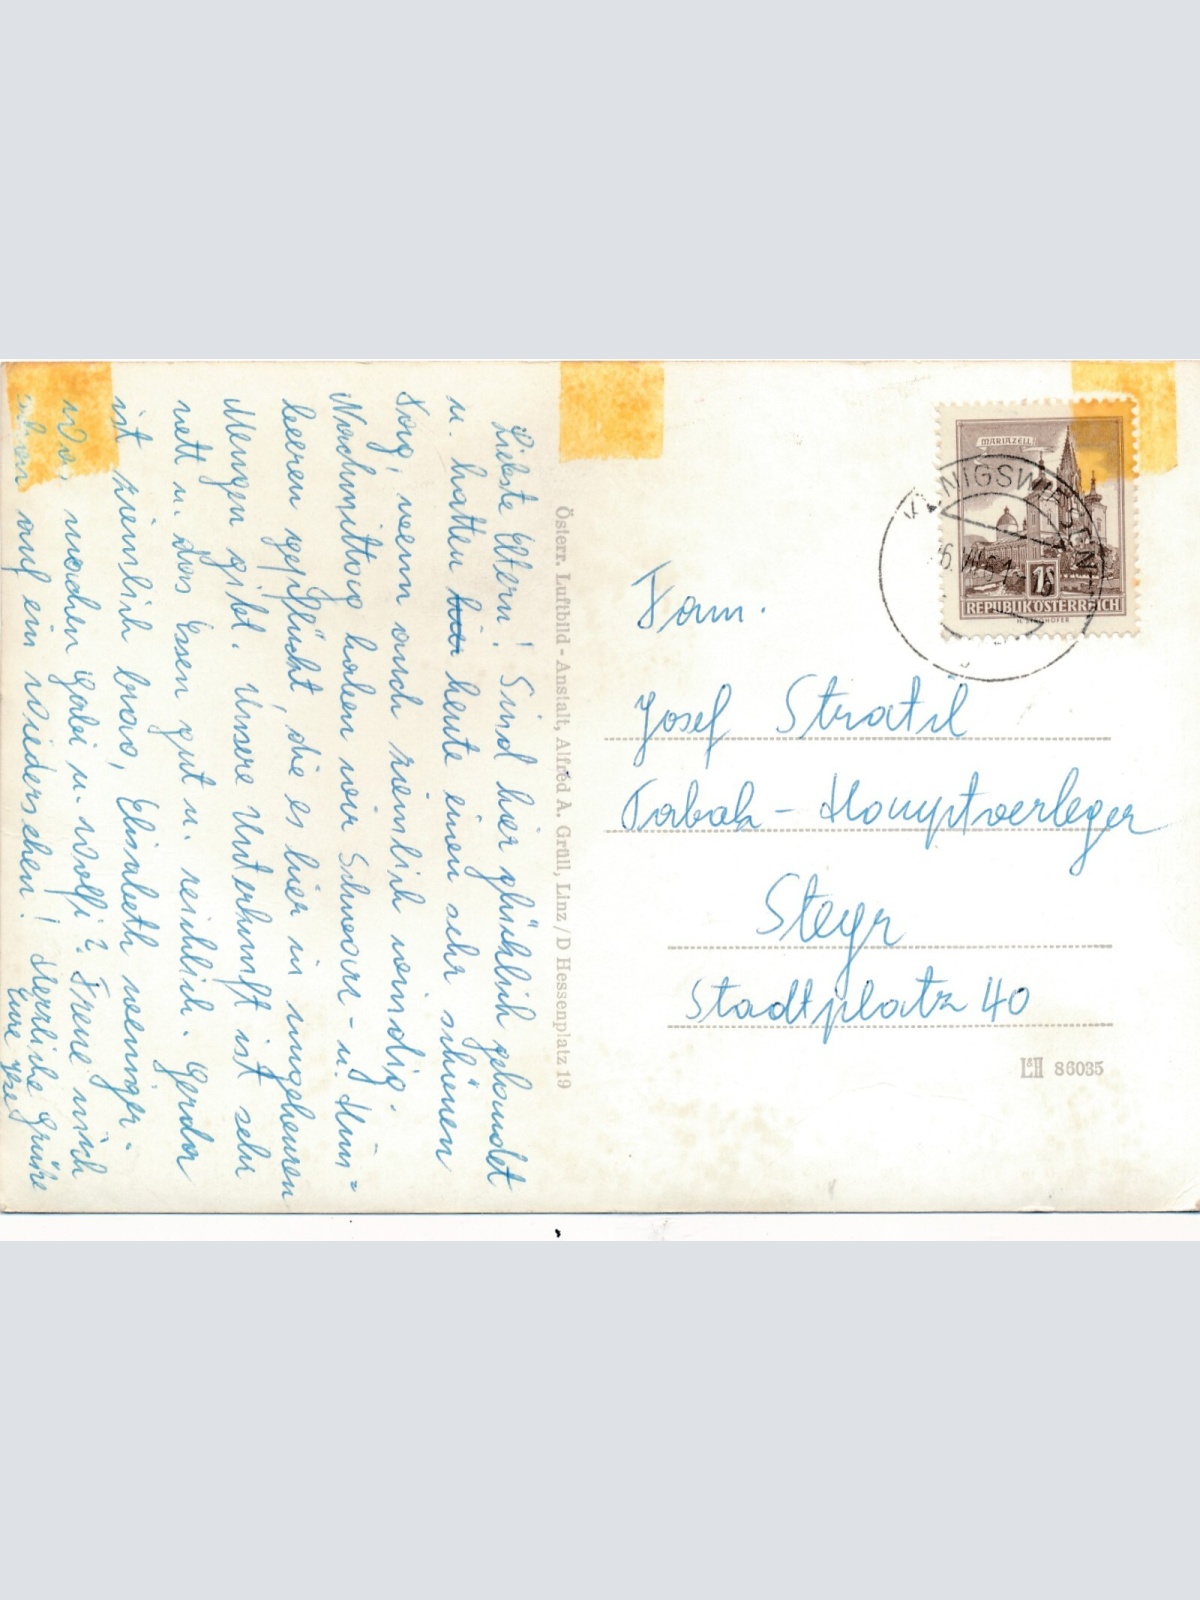 Liebste Eltern! Sind hier glücklich gelandet
u. hatten hier heute einen sehr schönen
Tag, wenn auch ziemlich windig.
Nachmittag haben wir Schwarz- u. Him=
beeren gepflückt, die es hier in ungeheuren
Mengen gibt. Unsere Unterkunft ist sehr
nett u. das Essen gut u. reichlich. Gerda
ist ziemlich brav, Elisabeth weniger.
machen Gabi u. Wolfi? Freue mich
auf ein Wiedersehen! Herzliche Grüße
Eure
Österr. Luftbild - Anstalt, Alfred A. Grüll, Linz / D Hessenplatz 19
MARIAZELL
1S
REPUBLIK ÖSTERREICH
H. STROHOFER
Fam.
Josef Stratil
Tabak - Hauptverleger
Steyr
Stadtplatz 40
L&H 86035